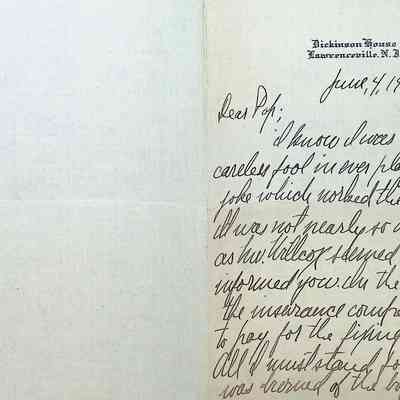 Dickinson House
Lawrenceville, N. J
June, 4, 19
Dear Pop;
I know I was
careless fool in ever pla
joke which worked the
It was not nearly so
as Mr. Willcox seemed
informed you. On the
the insurance compa
to pay for the fixing
All I must stand fo
was burned of the bo